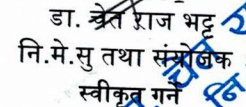 डा. चेत राज भट्ट
नि.मे.सु तथा संयोजक
स्वीकृत गर्ने